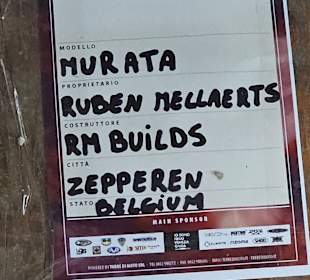 MODELLO
MURATA
PROPRIETARIO
RUBEN MELLAERTS
COSTRUTTORE
RM BUILDS
CITTÀ
ZEPPEREN
STATO
BELGIUM
MAIN SPONSOR